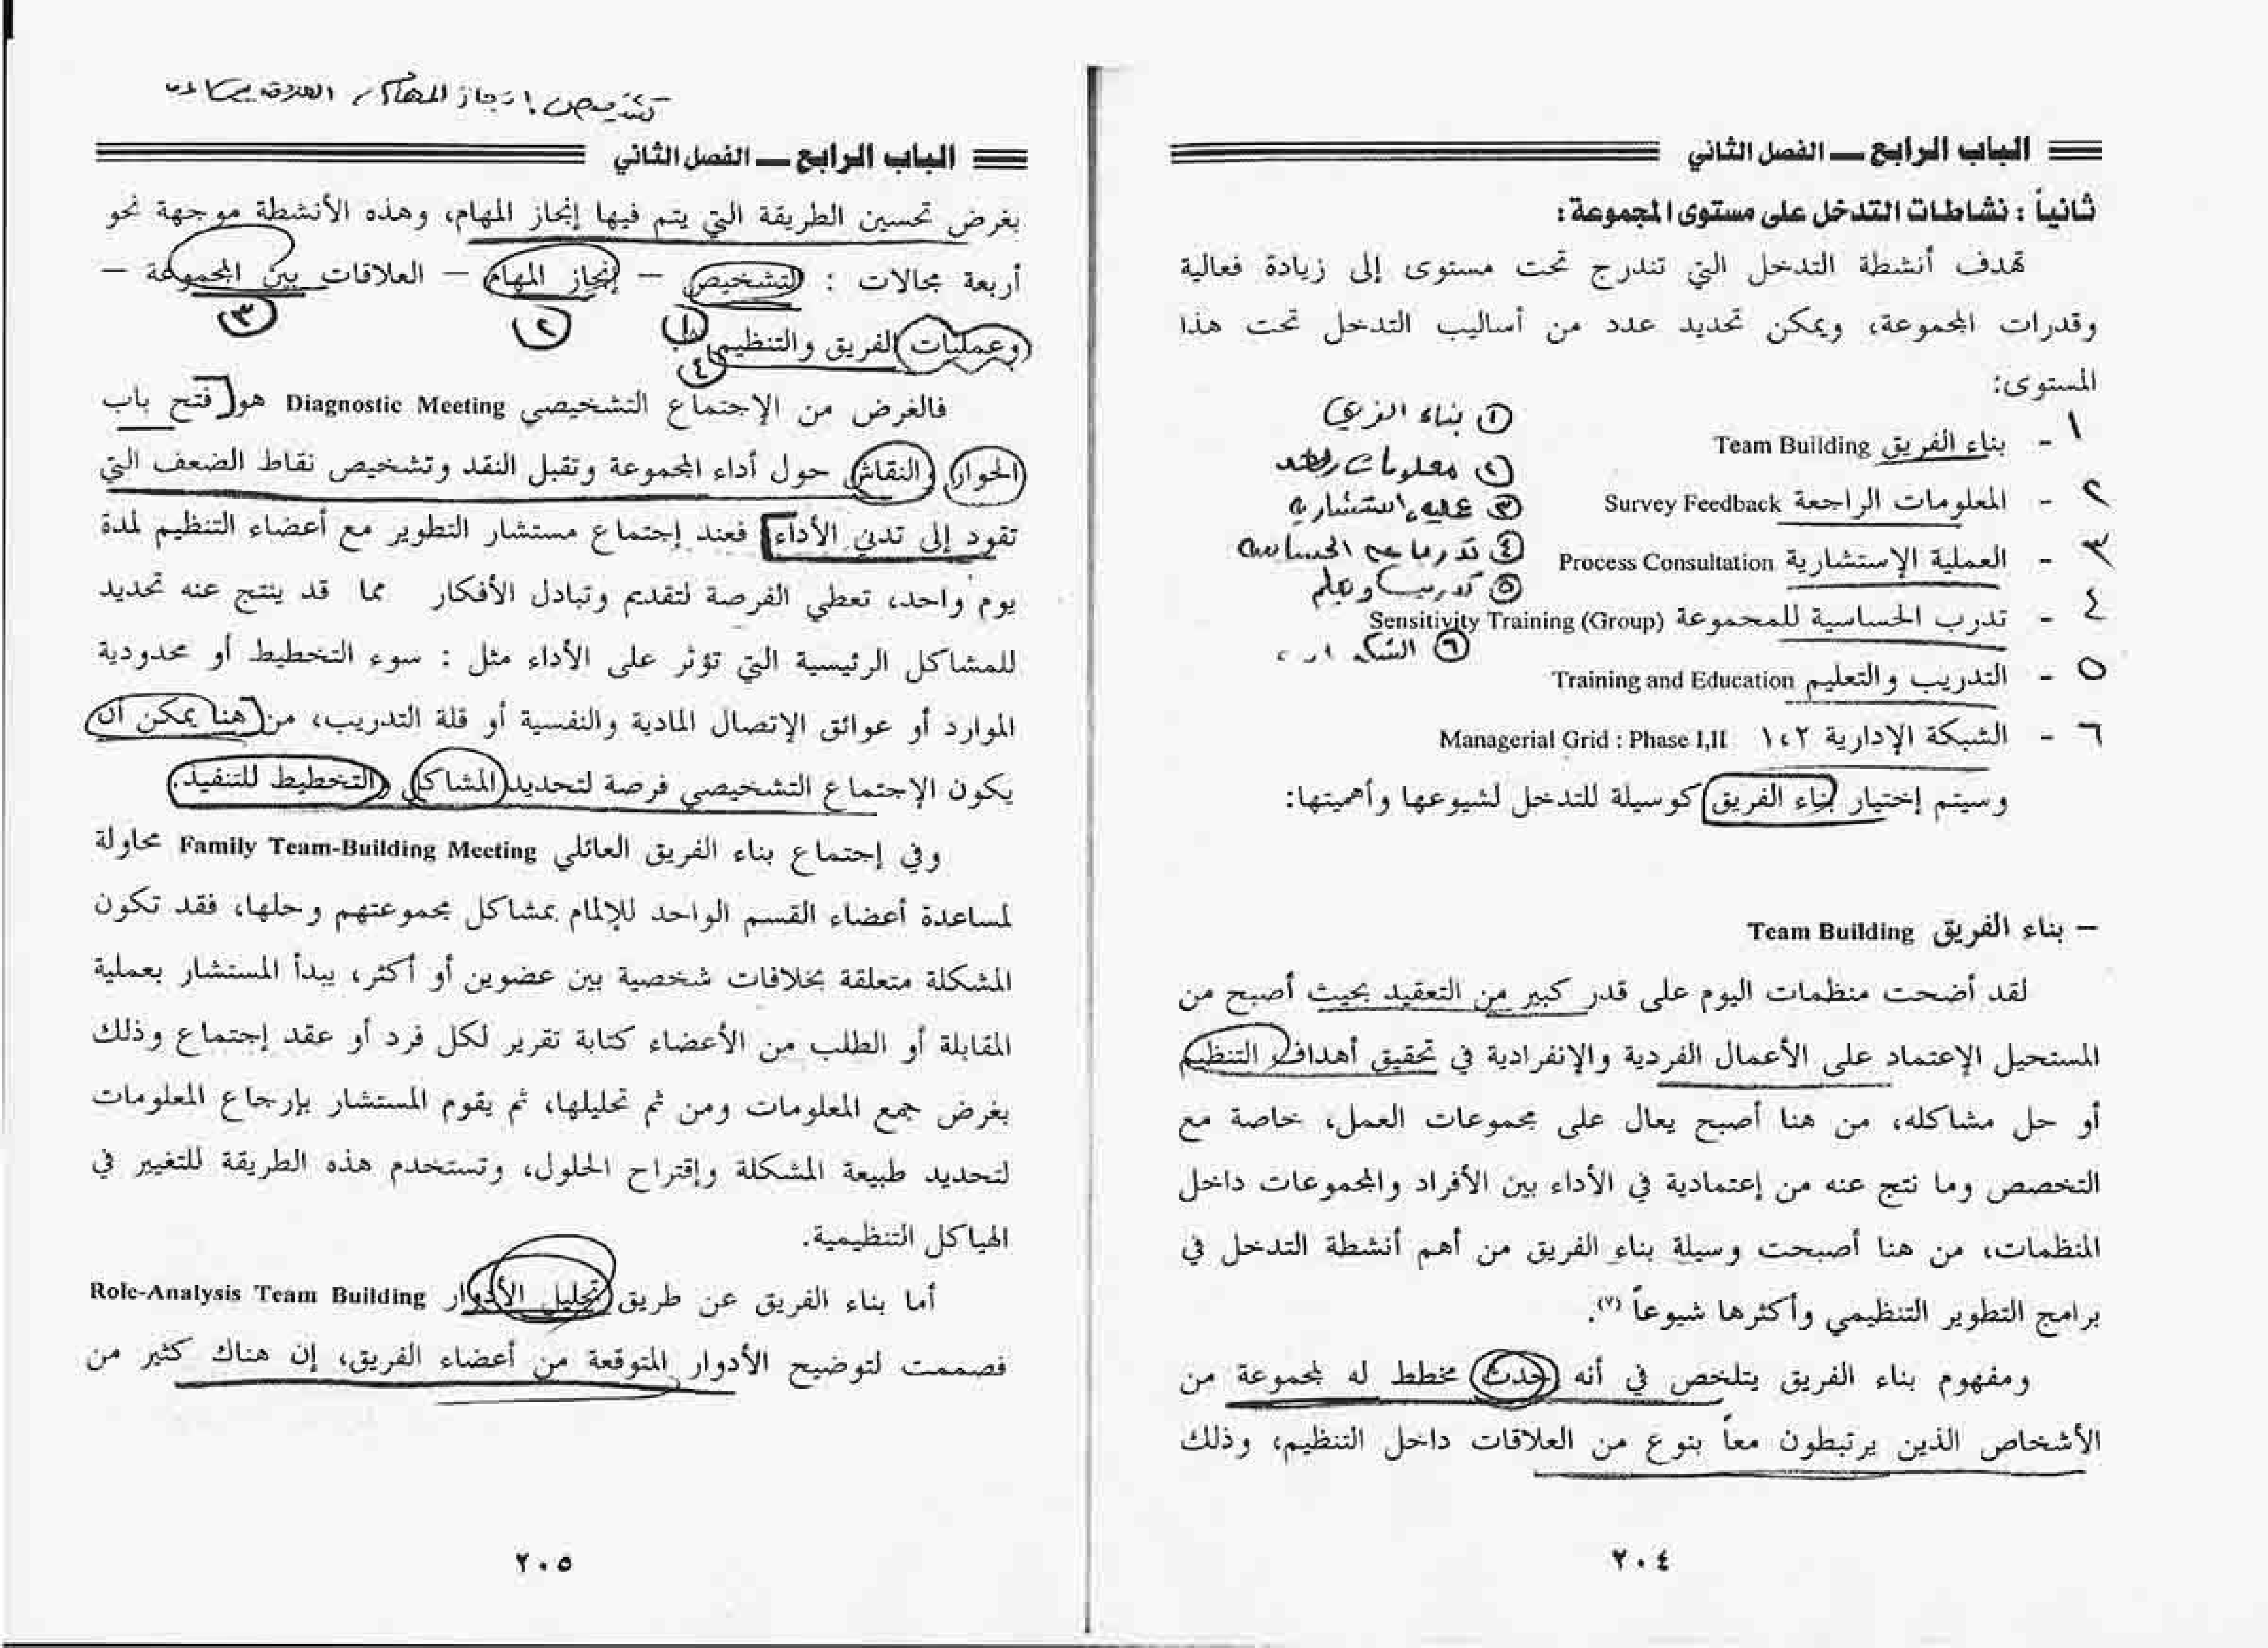 الباب الرابع ــ الفصل الثاني
ثانياً : نشاطات التدخل على مستوى المجموعة:
تهدف أنشطة التدخل التي تندرج تحت مستوى إلى زيادة فعالية
وقدرات المجموعة، ويمكن تحديد عدد من أساليب التدخل تحت هذا
المستوى:
١ - بناء الفريق Team Building
٢ - المعلومات الراجعة Survey Feedback
٣ - العملية الإستشارية Process Consultation
٤ - تدرب الحساسية للمجموعة Sensitivity Training (Group)
٥ - التدريب والتعليم Training and Education
٦ - الشبكة الإدارية ١،٢ Managerial Grid : Phase I,II
① بناء الفريق
② معلومات
③ عمليه استشاريه
④ الحساسيه
⑤ تدريب وتعلم
⑥ الشبكه
وسيتم إختيار بناء الفريق كوسيلة للتدخل لشيوعها وأهميتها:
– بناء الفريق Team Building
لقد أضحت منظمات اليوم على قدر كبير من التعقيد بحيث أصبح من
المستحيل الإعتماد على الأعمال الفردية والإنفرادية في تحقيق أهداف التنظيم
أو حل مشاكله، من هنا أصبح يعال على مجموعات العمل، خاصة مع
التخصص وما نتج عنه من إعتمادية في الأداء بين الأفراد والمجموعات داخل
المنظمات، من هنا أصبحت وسيلة بناء الفريق من أهم أنشطة التدخل في
برامج التطوير التنظيمي وأكثرها شيوعاً (٧).
ومفهوم بناء الفريق يتلخص في أنه حدث مخطط له لمجموعة من
الأشخاص الذين يرتبطون معاً بنوع من العلاقات داخل التنظيم، وذلك
٢٠٤
تشخيص انجاز المهام
الباب الرابع ــ الفصل الثاني
بغرض تحسين الطريقة التي يتم فيها إنجاز المهام، وهذه الأنشطة موجهة نحو
أربعة مجالات : التشخيص – إنجاز المهام – العلاقات بين المجموعة –
١ ٢ ٣
وعمليات الفريق والتنظيم.
٤
فالغرض من الإجتماع التشخيصي Diagnostic Meeting هو فتح باب
الحوار والنقاش حول أداء المجموعة وتقبل النقد وتشخيص نقاط الضعف التي
تقود إلى تدني الأداء فعند إجتماع مستشار التطوير مع أعضاء التنظيم لمدة
يوم واحد، تعطي الفرصة لتقديم وتبادل الأفكار مما قد ينتج عنه تحديد
للمشاكل الرئيسية التي تؤثر على الأداء مثل : سوء التخطيط أو محدودية
الموارد أو عوائق الإتصال المادية والنفسية أو قلة التدريب، من هنا يمكن أن
يكون الإجتماع التشخيصي فرصة لتحديد المشاكل والتخطيط للتنفيذ.
وفي إجتماع بناء الفريق العائلي Family Team-Building Meeting محاولة
لمساعدة أعضاء القسم الواحد للإلمام بمشاكل مجموعتهم وحلها، فقد تكون
المشكلة متعلقة بخلافات شخصية بين عضوين أو أكثر، يبدأ المستشار بعملية
المقابلة أو الطلب من الأعضاء كتابة تقرير لكل فرد أو عقد إجتماع وذلك
بغرض جمع المعلومات ومن ثم تحليلها، ثم يقوم المستشار بإرجاع المعلومات
لتحديد طبيعة المشكلة وإقتراح الحلول، وتستخدم هذه الطريقة للتغيير في
الهياكل التنظيمية.
أما بناء الفريق عن طريق تحليل الأدوار Role-Analysis Team Building
فصممت لتوضيح الأدوار المتوقعة من أعضاء الفريق، إن هناك كثير من
٢٠٥